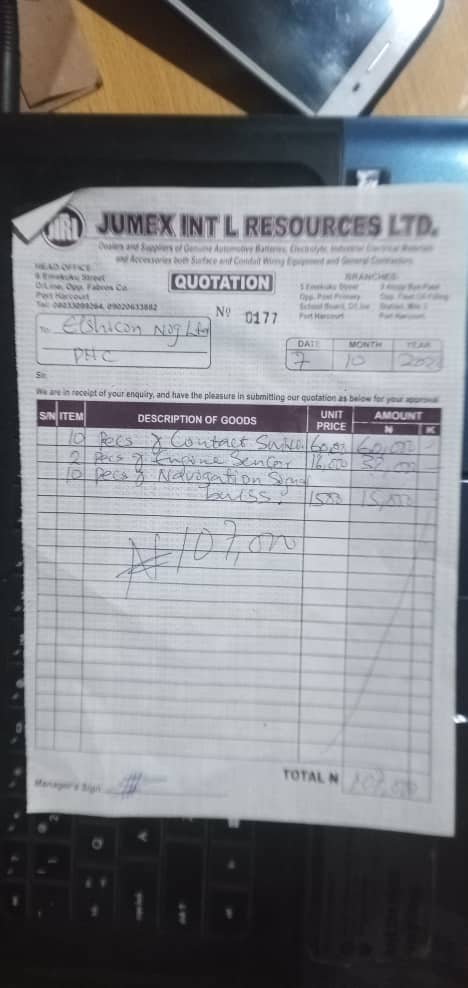 JRI JUMEX INT L RESOURCES LTD.
Dealers and Suppliers of Genuine Automotive Batteries, Electrolyte, Industrial Electrical Materials
and Accessories both Surface and Conduit Wiring Equipment and General Contractors
HEAD OFFICE
6 Emekuku Street
D/Line, Opp. Fabros Co.
Port Harcourt
Tel: 08033099264, 09020633882
QUOTATION
BRANCHES
5 Emekuku Street
Opp. Post Primary
School Board, D/Line
Port Harcourt
Port Harcourt
No 0177
To Elshicon Nig Ltd
PHC
DATE MONTH YEAR
7 10
Sir,
We are in receipt of your enquiry, and have the pleasure in submitting our quotation as below for your approval
S/N ITEM DESCRIPTION OF GOODS UNIT PRICE AMOUNT
N K
10 Pecs of Contact
2 Pecs of Engine Sensor
10 Pecs of Navogation
1500 15,000
₦107,000
TOTAL N 107,000
Manager's Sign